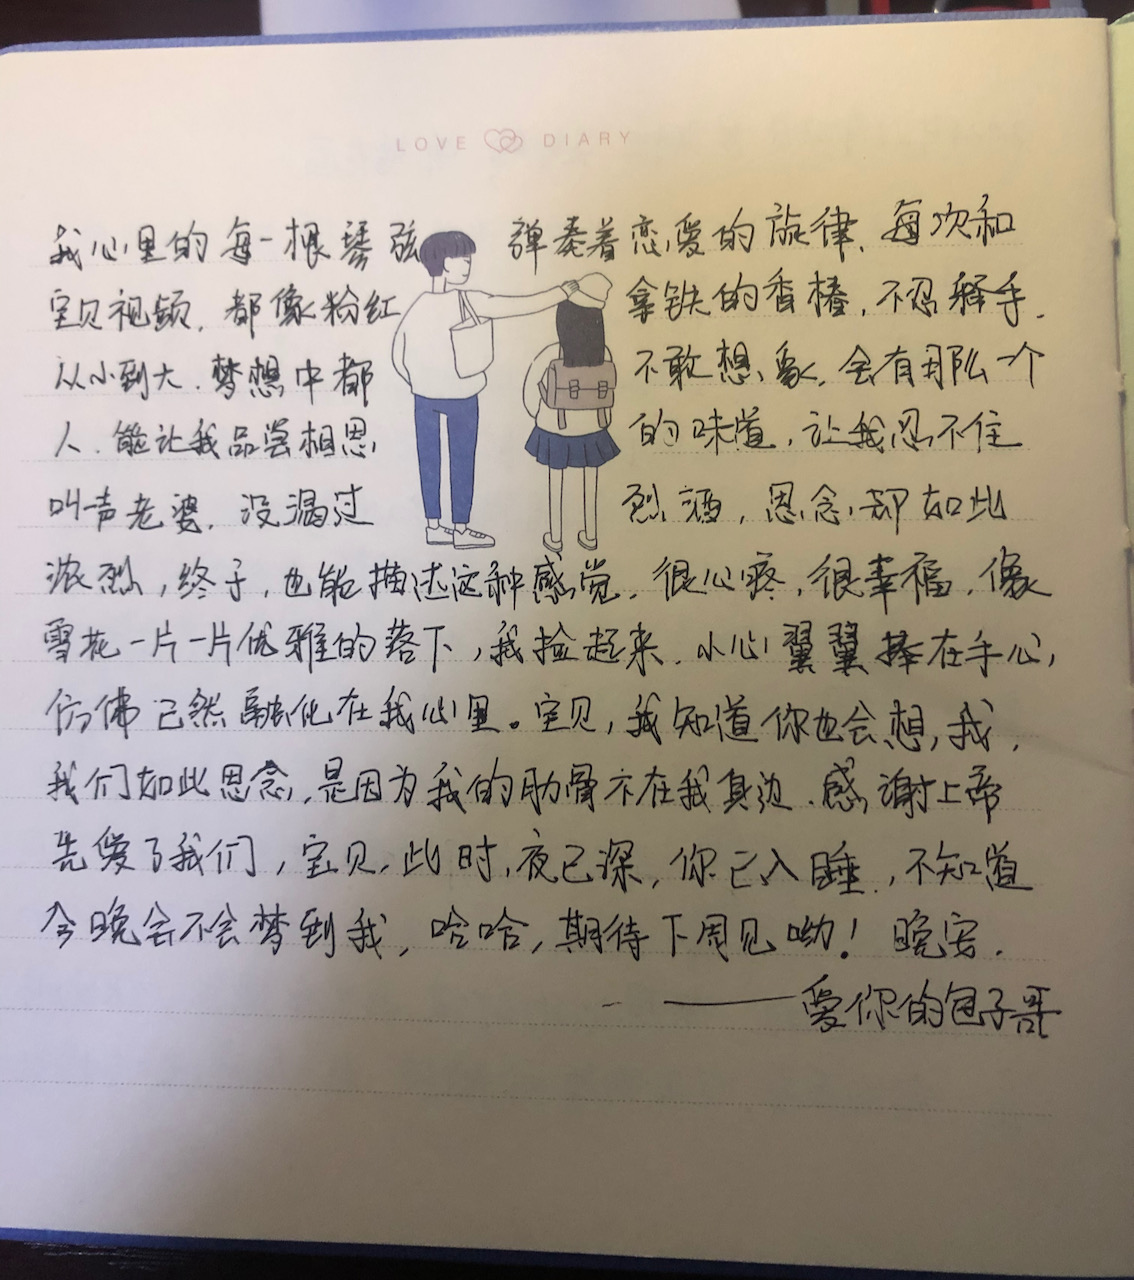 LOVE DIARY
我心里的每一根琴弦 弹奏着恋爱的旋律，每次和
宝贝视频，都像粉红 拿铁的香椿，不忍释手．
从小到大．梦想中都 不敢想象，会有那么一个
人．能让我品尝相思 的味道，让我忍不住
叫声老婆．没喝过 烈酒，思念却如此
浓烈，终于，也能描述这种感觉．很心疼，很幸福．像
雪花一片一片优雅的落下，我捡起来．小心翼翼捧在手心，
仿佛已然融化在我心里。宝贝，我知道你也会想，我．
我们如此思念，是因为我的肋骨不在我身边．感谢上帝
先爱了我们，宝贝，此时，夜已深，你已入睡．，不知道
今晚会不会梦到我，哈哈，期待下周见呦！晚安．
——爱你的包子哥